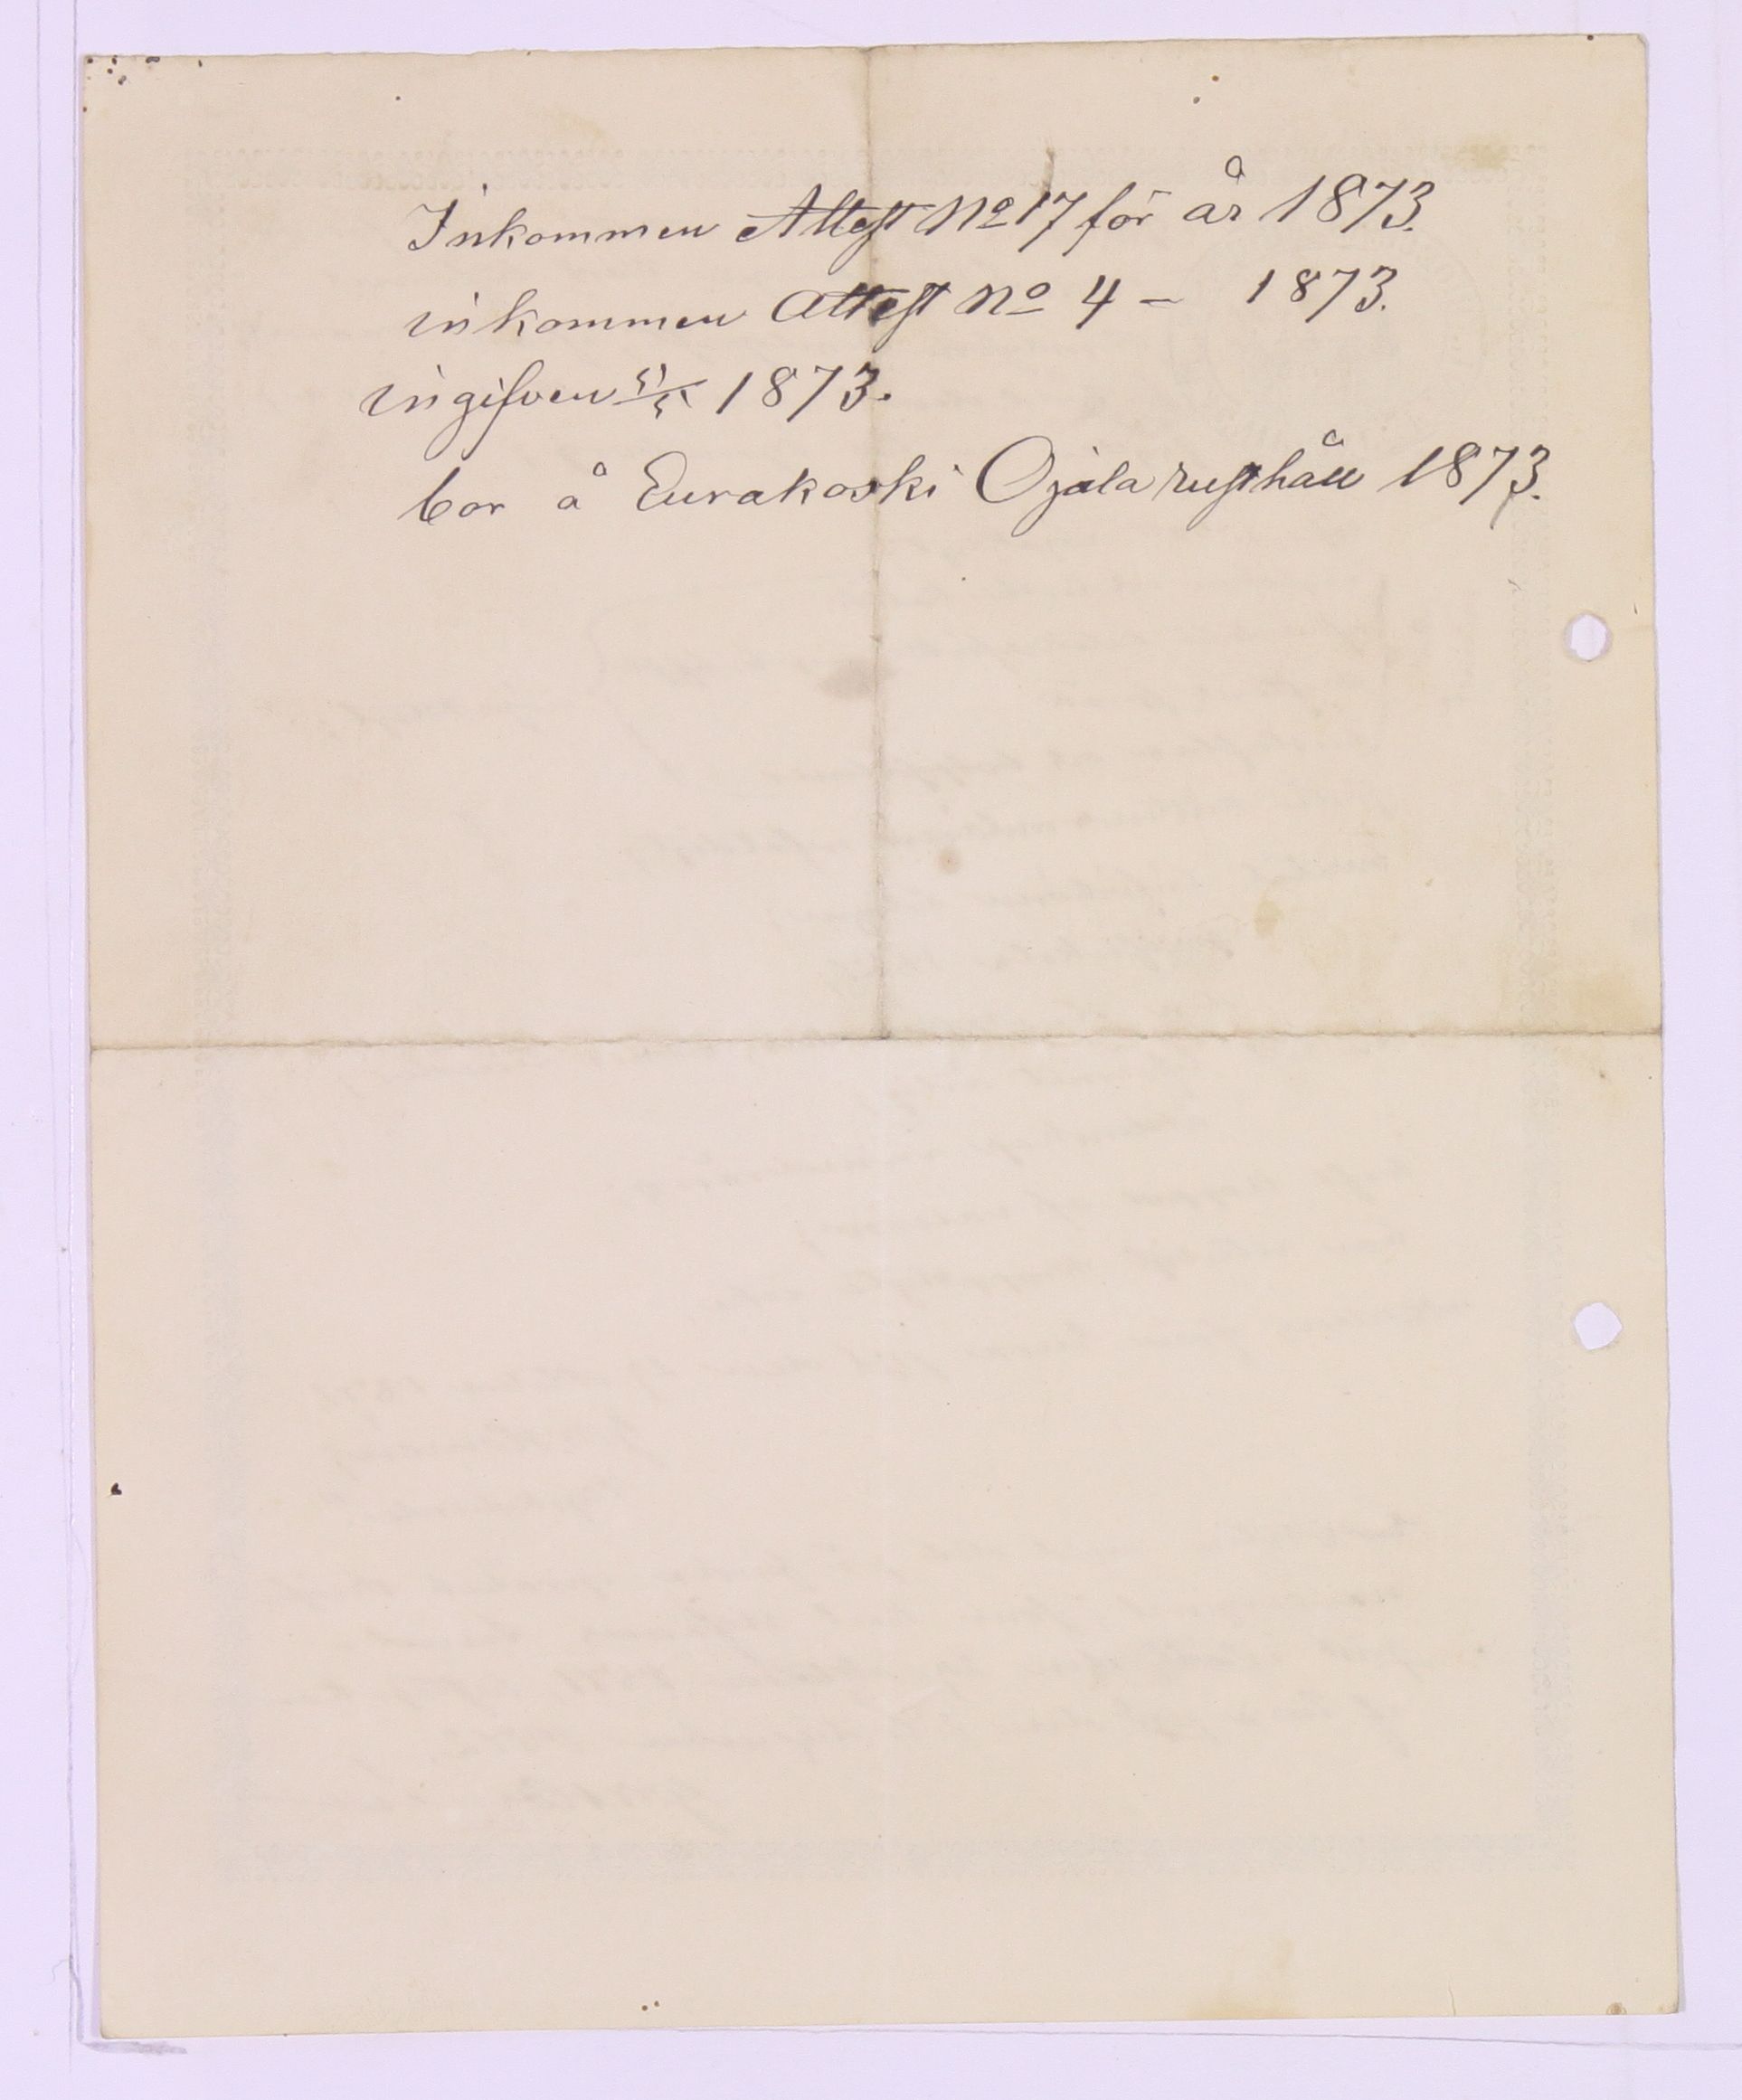 Inkommen Attest No 17 för år 1873.
inkommen attest No 4 – 1873.
ingifven 1873.
bor å Eurakoski Ojala rusthåll 1873.